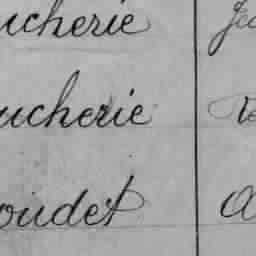 ucherie Je
ucherie Ve
oudet A